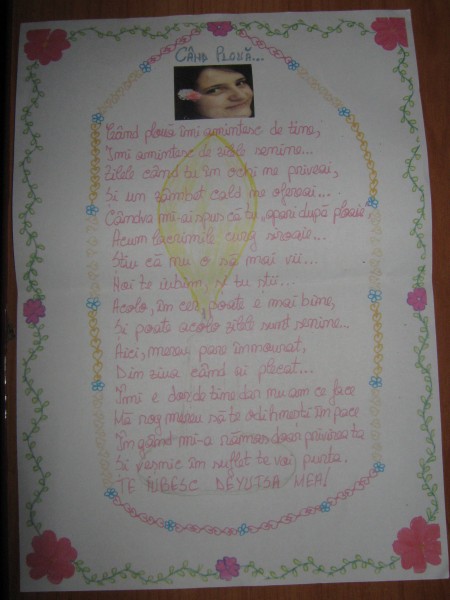 Când Plouă...
Când plouă îmi amintesc de tine,
Îmi amintesc de zilele senine...
Zilele când tu în ochi me priveai,
Și un zâmbet cald me ofereai...
Cândva mi-ai spus că tu „apari după ploaie,
Acum lacrimile curg șiroaie...
Știu că nu o să mai vii...
Noi te iubim, și tu știi...
Acolo, în cer poate e mai bine,
Și poate acolo zilele sunt senine...
Aici, mereu pare înnourat,
Din ziua când ai plecat...
Îmi e dor de tine dar nu am ce face
Mă rog mereu să te odihnești în pace
În gând mi-a rămas doar privirea ta
Și veșnic în suflet te voi purta.
TE IUBESC DEYUTSA MEA!